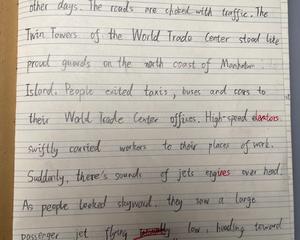 other days. The roads are choked with traffic. The
Twin Towers of the World Trade Center stood like
proud guards on the north coast of Manhattan
Island. People exited taxis, buses and cars to
their World Trade Center offices. High-speed elevators
swiftly carried workers to their places of work.
Suddenly, there's sounds of jets engines over head.
As people looked skyward, they saw a large
passenger jet flying low, heading toward